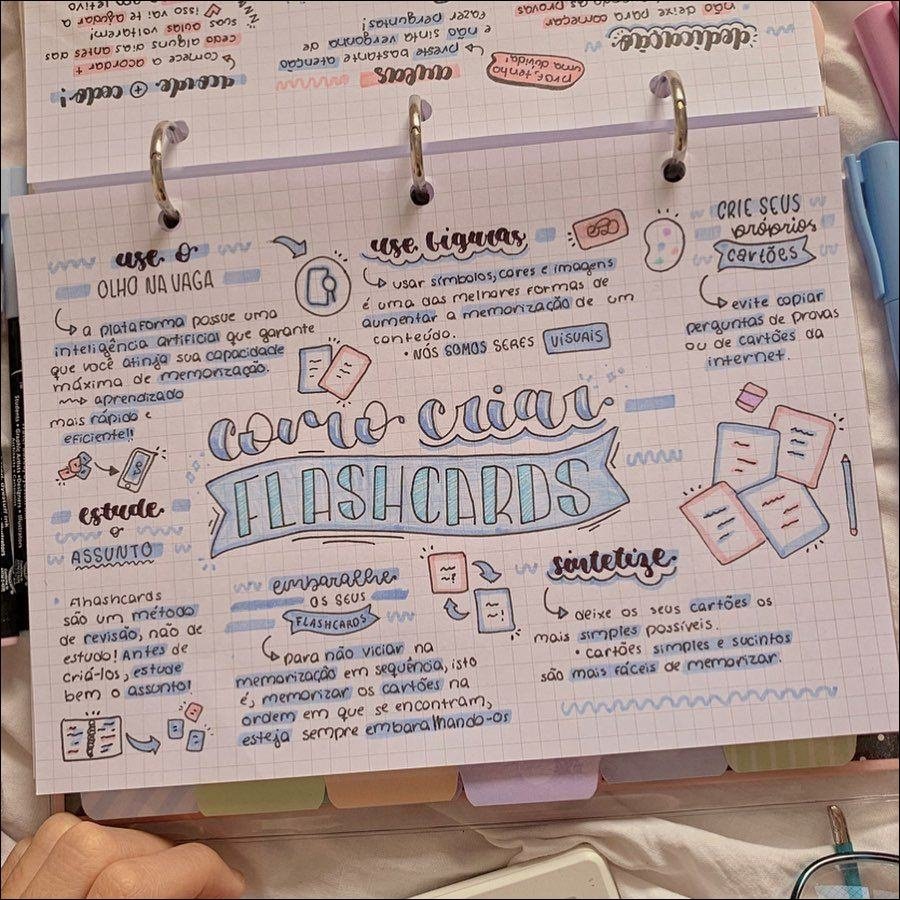 acorde + cedo!
↳ comece a acordar +
cedo alguns dias antes das
suas aulas
voltarem!
isso vai te
aulas
↳ preste bastante atenção
e não sinta vergonha de
fazer perguntas!
prof, tenho
uma dúvida!
dedicação
não deixe para começar
as provas
use o
OLHO NA VAGA
↳ a plataforma possue uma
inteligência artificial que garante
que você atinja sua capacidade
máxima de memorização.
aprendizado
mais rápido e
eficiente!!
use figuras
↳ usar símbolos, cores e imagens
é uma das melhores formas de
aumentar a memorização de um
conteúdo.
• NÓS SOMOS SERES VISUAIS
CRIE SEUS
próprios
cartões
↳ evite copiar
perguntas de provas
ou de cartões da
internet.
como criar
FLASHCARDS
estude
o
ASSUNTO
• Flashcards
são um método
de revisão, não de
estudo! Antes de
criá-los, estude
bem o assunto!
embaralhe
OS SEUS
FLASHCARDS
↳ para não viciar na
memorização em sequência, isto
é, memorizar os cartões na
ordem em que se encontram,
esteja sempre embaralhando-os
sintetize
↳ deixe os seus cartões os
mais simples possíveis.
• cartões simples e sucintos
são mais fáceis de memorizar.